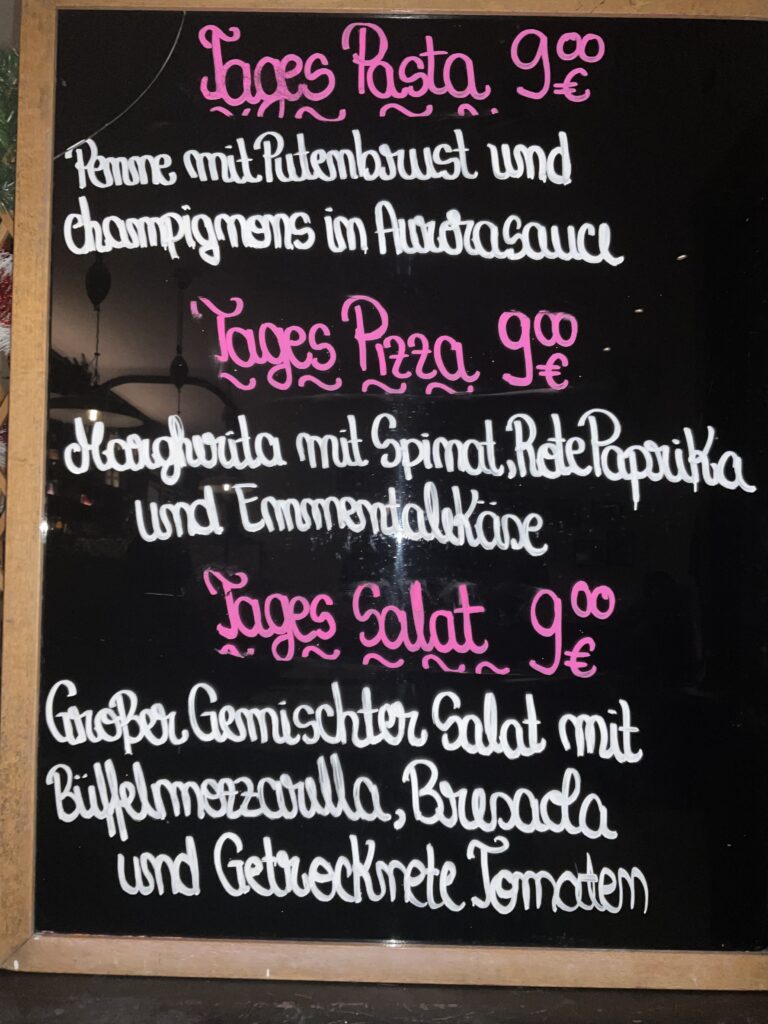 Tages Pasta 9⁰⁰ €
Penne mit Putenbrust und
champignons in Aurorasauce
Tages Pizza 9⁰⁰ €
Margherita mit Spinat, Rote Paprika
und Emmentalerkäse
Tages Salat 9⁰⁰ €
Großer Gemischter Salat mit
Büffelmozzarella, Bresaola
und Getrocknete Tomaten